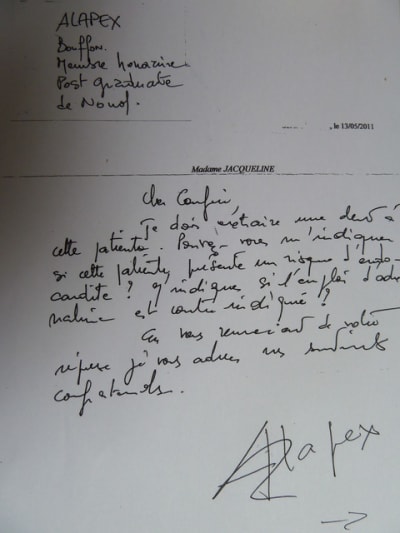 ALAPEX
Bouffon.
Membre honoraire
Post graduate
de Nonos.
, le 13/05/2011
Madame JACQUELINE
Cher Confrère,
Je dois extraire une dent à
cette patiente. Pouvez-vous m'indiquer
si cette patiente présente un risque d'endo-
cardite ? M'indiquer si l'emploi d'adré
naline est contre indiqué ?
En vous remerciant de votre
réponse je vous adresse mes sentiments
confraternels.
Alapex
→